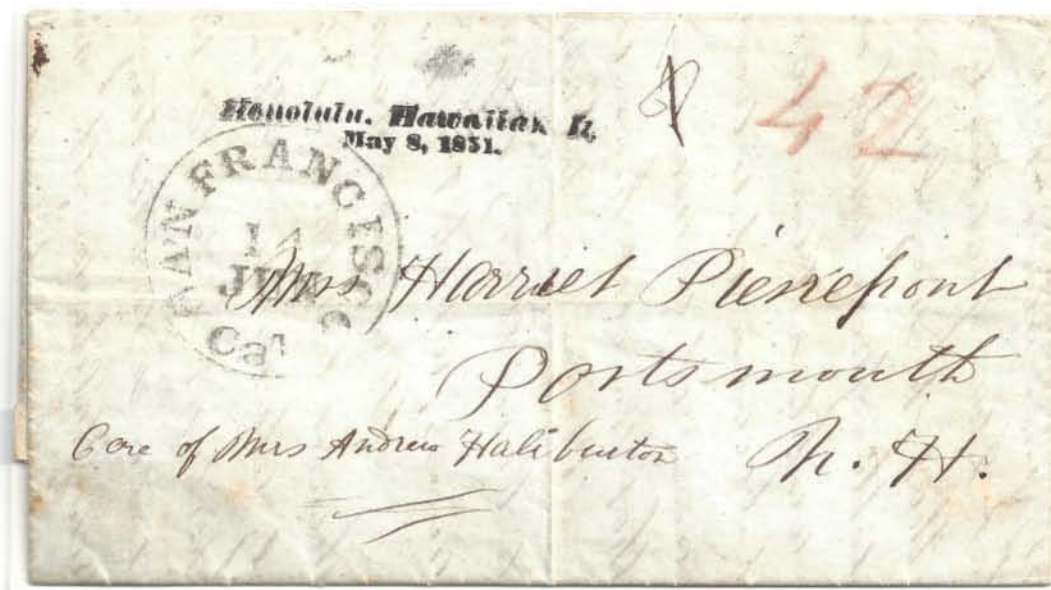 Honolulu. Hawaiian Is.
May 8, 1851.
42
SAN FRANCISCO
Cal
Mrs Harriet Pierrepont
Portsmouth
Care of Mrs Andrew Haliburton N. H.